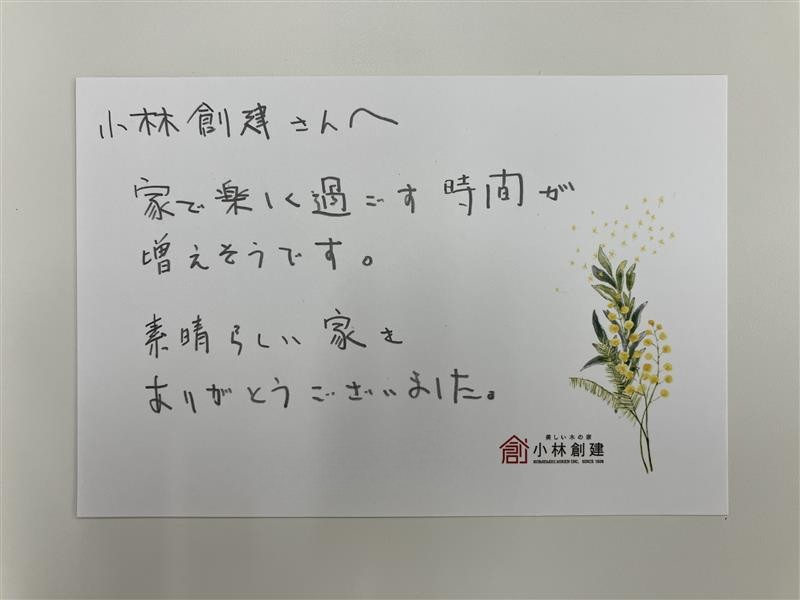 小林創建さんへ
家で楽しく過ごす時間が
増えそうです。
素晴らしい家を
ありがとうございました。
美しい木の家
創 小林創建
KOBAYASHI SOKEN INC. SINCE 1926